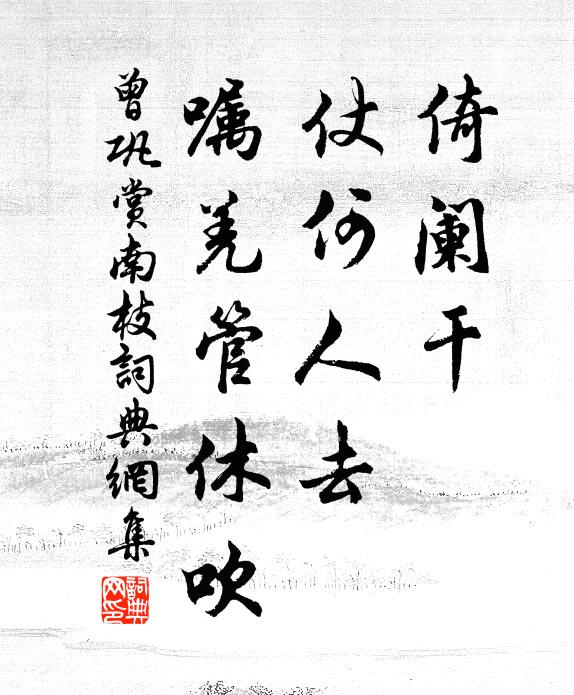 倚阑干
仗何人去
嘱羌管休吹
曾巩赏南枝詞典網集
詞典网印